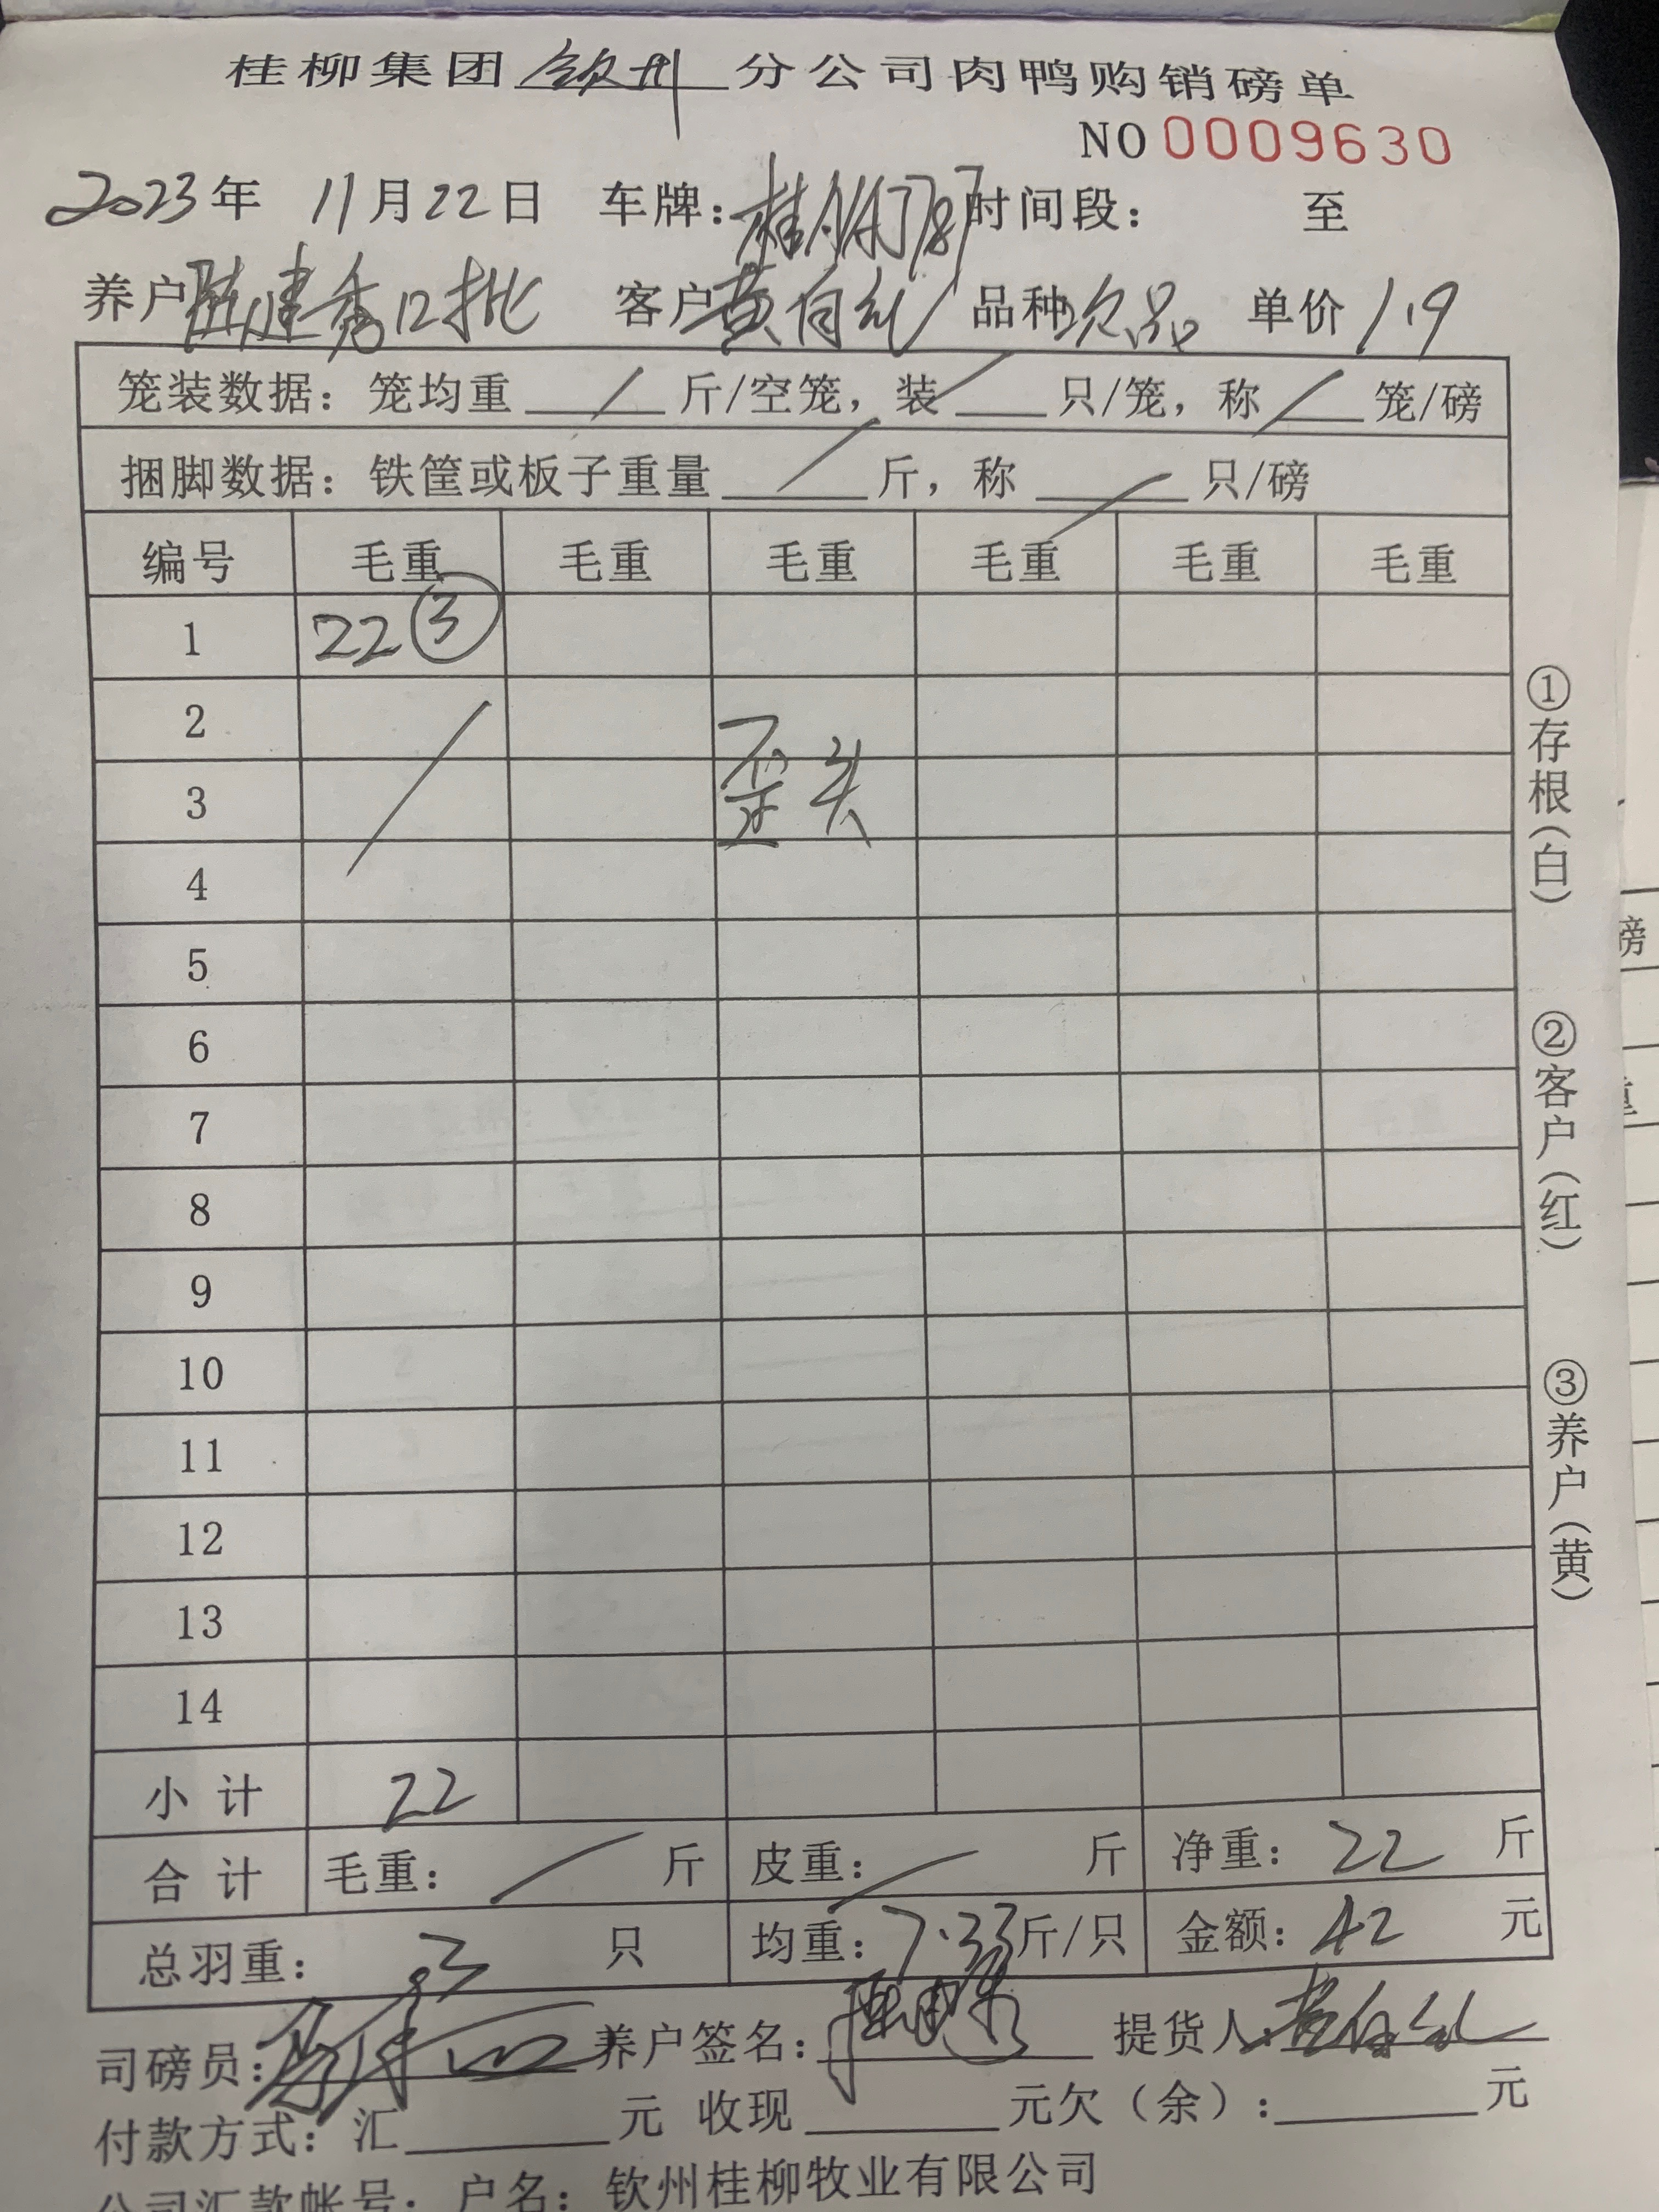 桂柳集团钦州分公司肉鸭购销磅单
NO 0009630
2023年 11月22日 车牌：桂 时间段： 至
养户 建秀12批 客户 黄自 品种 次品 单价 1.9
笼装数据：笼均重 / 斤/空笼，装 / 只/笼，称 / 笼/磅
捆脚数据：铁筐或板子重量 / 斤，称 / 只/磅
编号 毛重 毛重 毛重 毛重 毛重 毛重
1 22 ③
2
3 歪头
4
5
6
7
8
9
10
11
12
13
14
小计 22
合计 毛重： / 斤 皮重： / 斤 净重：22 斤
总羽重： 3 只 均重：7.33 斤/只 金额：42 元
司磅员： 养户签名： 提货人：黄自
付款方式：汇 元 收现 元欠（余）： 元
公司汇款帐号：户名：钦州桂柳牧业有限公司
①存根（白）
②客户（红）
③养户（黄）
磅
重